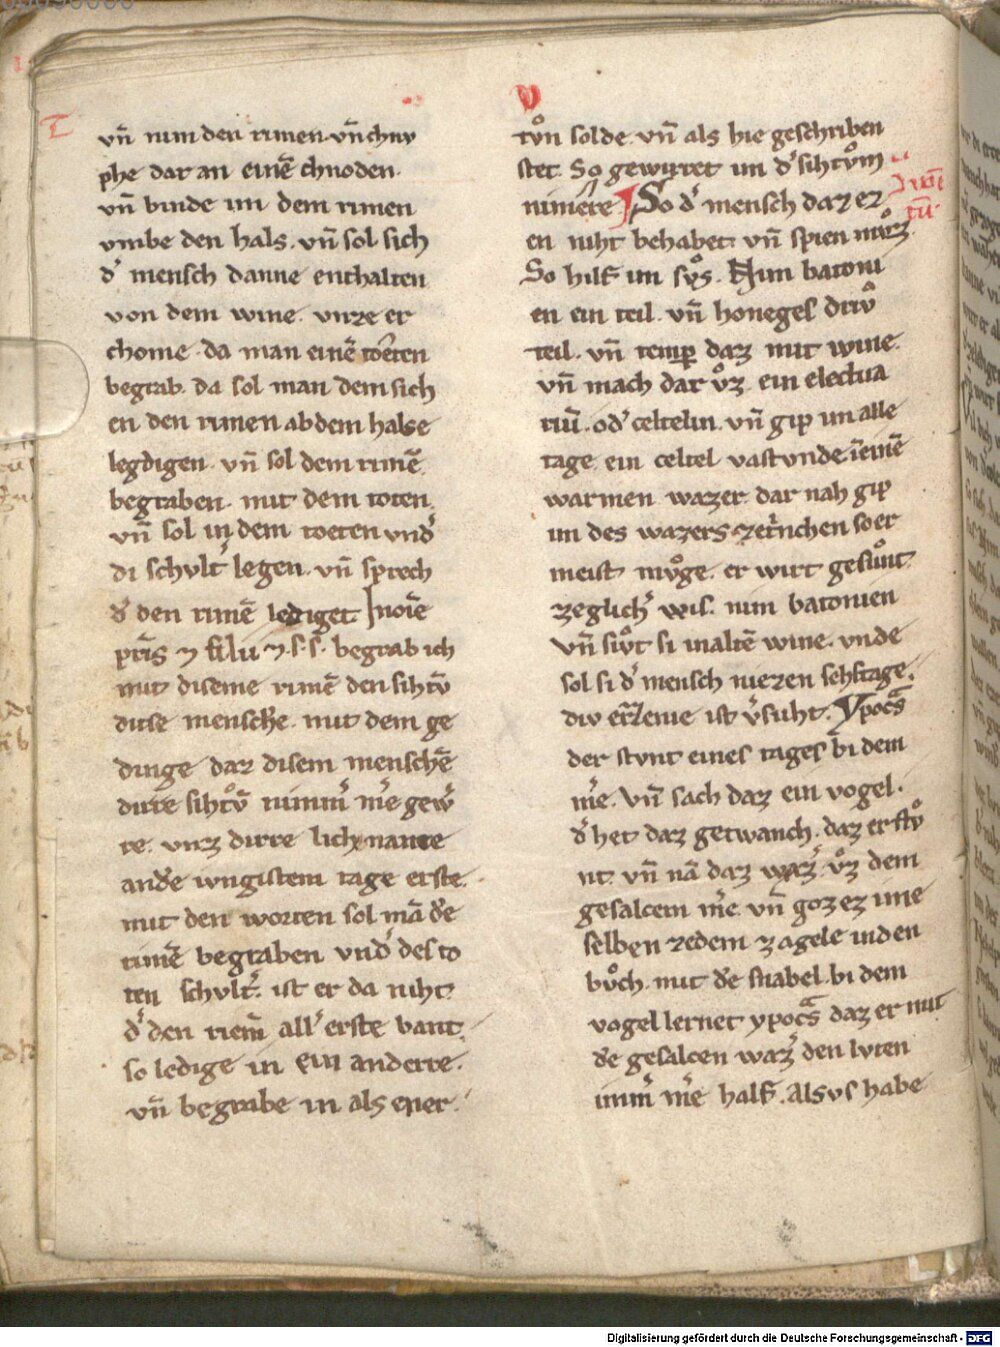 vn̄ nim den rimen. vn̄ chnv
phe dar an einē chnoden.
vn̄ binde im dem rimen
vmbe den hals. vn̄ sol sich
d͛ mensch danne enthalten
von dem wine. vnze er
chome. da man einē toͤten
begrab. da sol man dem sich
en den rimen ab dem halse
legdigen. vn̄ sol dem rimē
begraben. mit dem toten.
vn̄ sol in dem toeten vnd͛
di schvlt͛ legen. vn̄ sprech
d͛ den rimē lediget. Inoīe
pr̄is ⁊ filii ⁊ .s. s̄. begrab ich
mit diseme rimē den sihtv̄
dirse mensch͛e. mit dem ge
dinge daz disem menschē
dirre sihtvͦ nimm͛ m͛e gew͛
re. vnz dirre lichnante
and͛e ivngistem tage erste.
mit den worten sol mā d͛e
rimē begraben vnd͛ des to
ten schvlt͛. ist er da niht
d͛ den riem̄ all͛ erste bant.
so ledige in ein anderre.
vn̄ begrabe in als ener.
V
tvͦn solde. vn̄ als hie geschriben
stet. So gewirret im d͛ sihtvͦm
nimēre. So d͛ mensch daz ez
en niht behabet. vn̄ spien mvͦz.
So hilf im svͦs. Nim batoni
en ein teil. vn̄ honeges driv
teil. vn̄ temper daz mit wine.
vn̄ mach dar vͦz ein electua
riū. od͛ celtelin. vn̄ gip im alle
tage ein celtel vastvnde īeinē
warmen wazer. dar nah gip
im des wazers zetrinchen so er
meist mvͦge. er wirt gesvͦnt.
zeglich͛ wis. nim batonien
vn̄ sivͦt si in altē wine. vnde
sol si d͛ mensch niezen sehstage.
div erz͛enie ist v͛suht. Ypoc͛s
der stvnt eines tages bi dem
m͛e. vn̄ sach daz ein vogel.
d͛ het daz getwanch. daz er stvͦ
nt. vn̄ nā daz waz͛ vͦz dem
gesalcem m͛e. vn̄ goz ez ime
selben zedem zagele in den
bvͦch. mit d͛e snabel. bi dem
vogel lernet ypoc͛s daz er mit
d͛e gesalcen waz͛ den lvten
imm͛ m͛e half. Alsvs habe
Digitalisierung gefördert durch die Deutsche Forschungsgemeinschaft - DFG